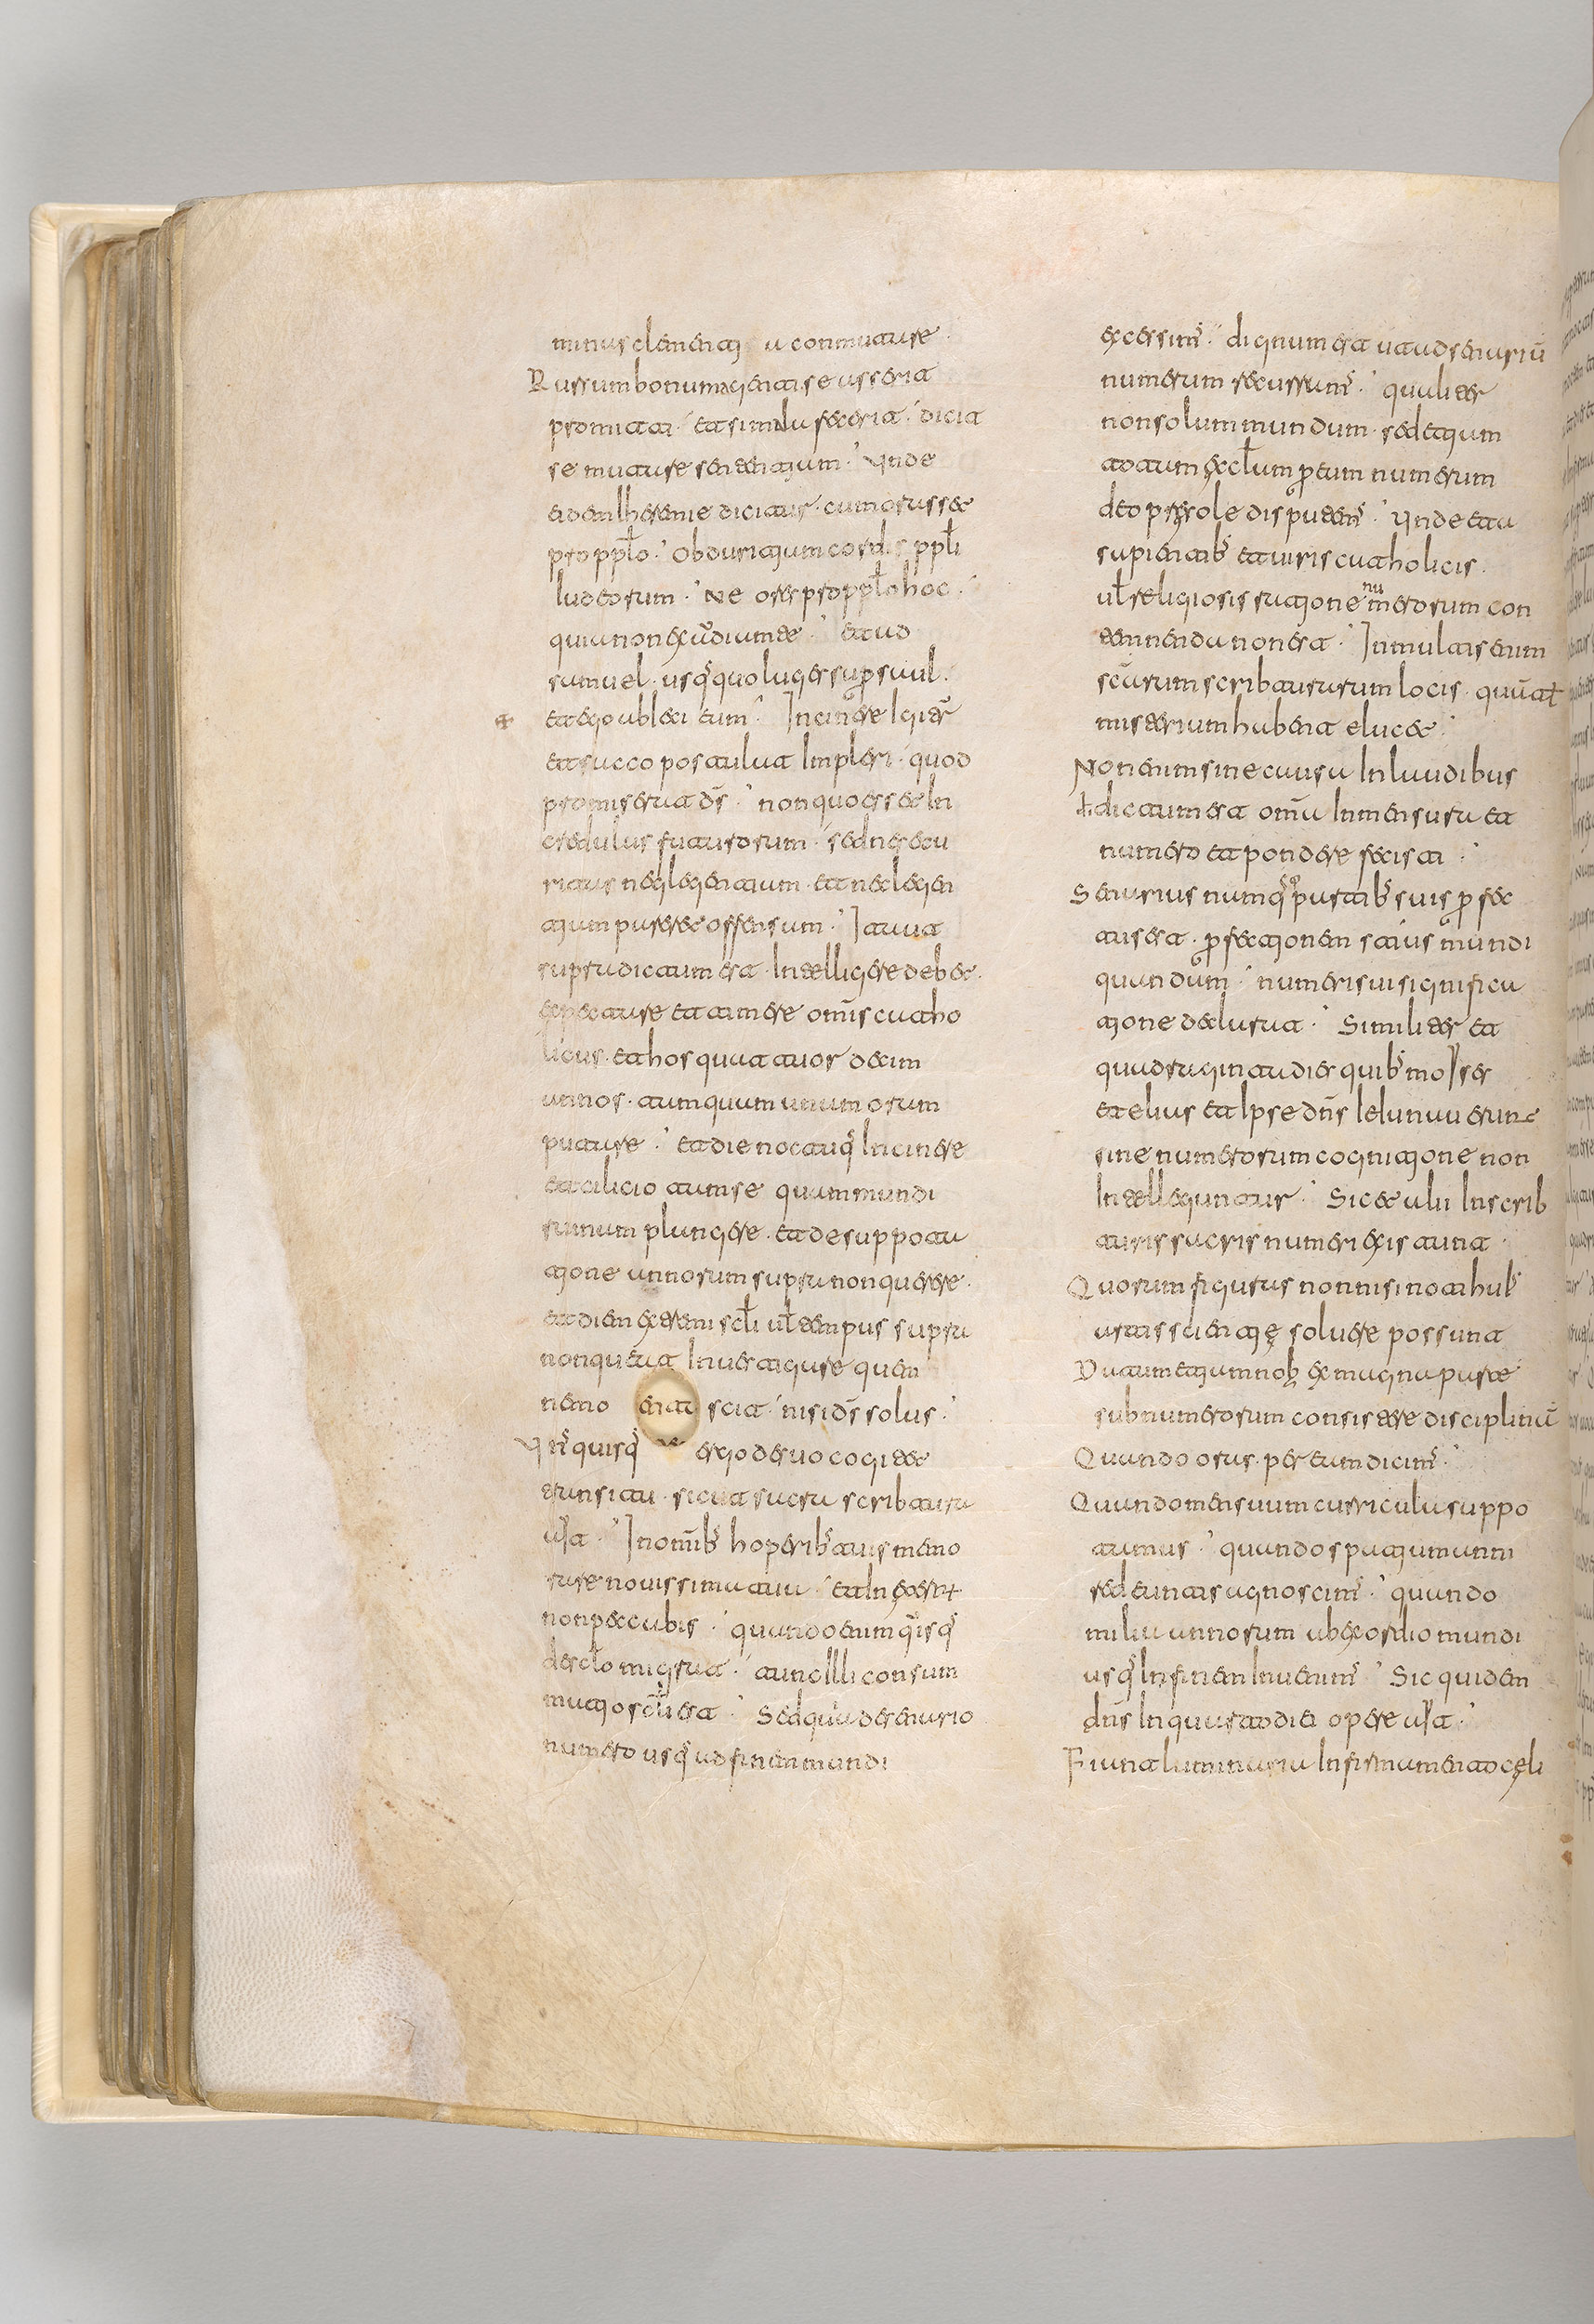 minus clementia a conmutare
Rursum bonum agenti se usseria
promittat· et si mala fecerit· dicit
se mutare sententiam· Unde
et denlheremie dicitur· cum orasset
pro pp̄lo· Obduratjum cordis pp̄li
Iudeorum· Ne ores pro pp̄lo hoc·
quia non exaudiam te· et ad
samuel· usq̄ quo luges super saul·
et ego abieci eum· In cinere igitur
et sacco postulat Impleri· quod
promiserat d̄s· non quo esset In
credulus futurorum· sed ne secu
ritas neglegentjam· et neclegen
tjam pareret offensam· Ita ut
supra dictum est· Intellegere debet·
expectare et timere omnis catho
licus· et hos quattuor decim
annos· tamquam unum oram
putare· et die noctuq̄ In cinere
et cilicio tam se quam mundi
ruinam plangere· et de supputa
tjone annorum supra non querere·
et diem extremi scl̄i ul̄ tempus supra
non querat Inuestigare quem
nemo scit nisi d̄s solus·
Un̄quisq̄ ergo de suo cogitet
transitu· sicut sacra scribtura
ait· In omnib; hoperib; tuis memo
rare nouissima tua· et In eternū
non peccabis· quando enim quisq̄
de scl̄o migrat· tunc Illi consum
matjo scl̄i est· Sed quia de senario
numero usq̄ ad finem mundi
excessim̄· dignum est ut ad senariū
numerum recurram̄· qualiter
non solum mundum· sed etjam
totum exclum per eum numerum
deo presole disputem̄· Unde et a
sapientib; et a uiris catholicis·
ul̄ religiosis ratjone numerorum con
temnenda non est· In multis enim
sc̄arum scribturarum locis· quantū
misterium habent elucet·
Non enim sine causa In laudibus
d̄i dictum est om̄ia In mensura et
numero et pondere fecisti·
Senarius namq̄ q̄ partib; suis perfec
tus est· perfectjonem istius mundi
quandam· numeri sui significa
tjone declarat· Similiter et
quadraginta dies quib; moyses
et elias et Ipse dn̄s Ieiunauerunt
sine numerorum cognitjone non
Intelleguntur· Sic et alii In scrib
turis sacris numeri existunt·
Quorum figuras non nisi noti huius
artis scientję soluere possunt
Datum etjam nob; ex magna parte
sub numerorum consistere disciplinā
Quando oras· per eum dicim̄·
Quando mensuum curricula suppu
tamus· quando spatjum anni
redeuntis agnoscim̄· quando
milia annorum ab exordio mundi
usq̄ In finem Inuenim̄· Sic quidem
dn̄s In quarto diei opere ait·
Fiunt luminaria In firmamento cęli